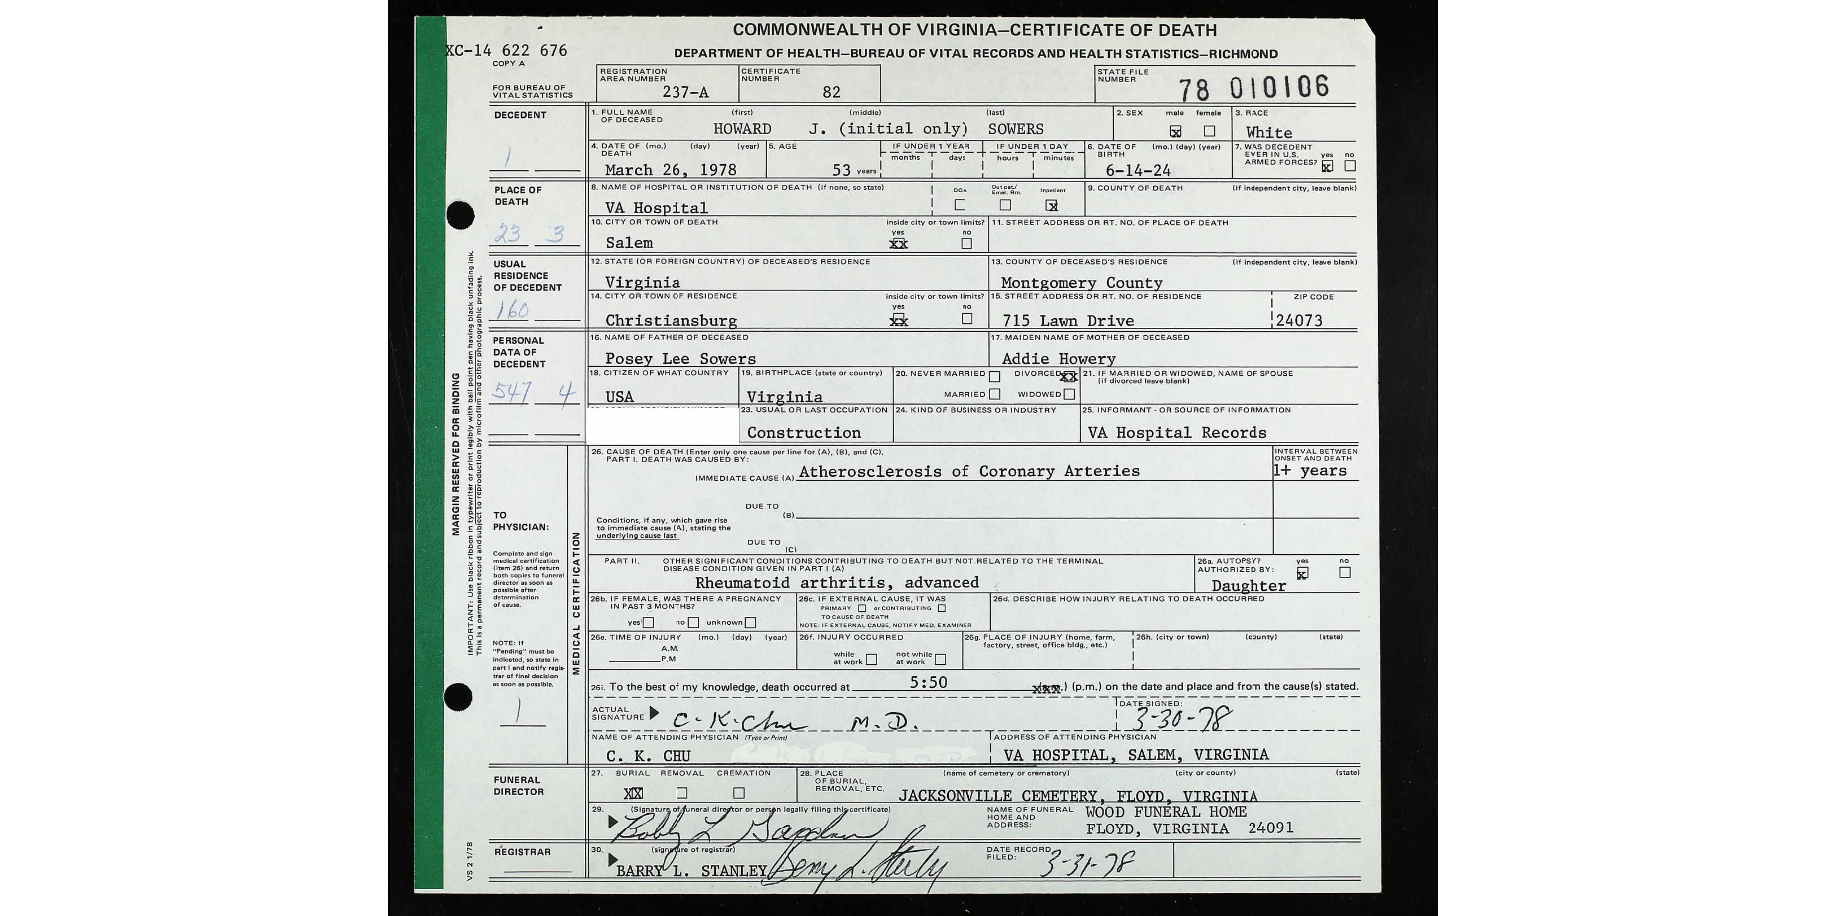 COMMONWEALTH OF VIRGINIA—CERTIFICATE OF DEATH
XC-14 622 676
DEPARTMENT OF HEALTH—BUREAU OF VITAL RECORDS AND HEALTH STATISTICS—RICHMOND
COPY A
FOR BUREAU OF VITAL STATISTICS
REGISTRATION AREA NUMBER 237-A
CERTIFICATE NUMBER 82
STATE FILE NUMBER 78 010106
DECEDENT
1
1. FULL NAME OF DECEASED (first) (middle) (last)
HOWARD J. (initial only) SOWERS
2. SEX male x female
3. RACE White
4. DATE OF DEATH (mo.) (day) (year) March 26, 1978
5. AGE 53 years
IF UNDER 1 YEAR months days
IF UNDER 1 DAY hours minutes
6. DATE OF BIRTH (mo.) (day) (year) 6-14-24
7. WAS DECEDENT EVER IN U.S. ARMED FORCES? yes x no
PLACE OF DEATH
23 3
8. NAME OF HOSPITAL OR INSTITUTION OF DEATH (if none, so state) VA Hospital
DOA Out pat./ Emer. Rm. Inpatient x
9. COUNTY OF DEATH (if independent city, leave blank)
10. CITY OR TOWN OF DEATH Salem
inside city or town limits? yes xx no
11. STREET ADDRESS OR RT. NO. OF PLACE OF DEATH
USUAL RESIDENCE OF DECEDENT
160
12. STATE (OR FOREIGN COUNTRY) OF DECEASED'S RESIDENCE Virginia
13. COUNTY OF DECEASED'S RESIDENCE (if independent city, leave blank) Montgomery County
14. CITY OR TOWN OF RESIDENCE Christiansburg
inside city or town limits? yes xx no
15. STREET ADDRESS OR RT. NO. OF RESIDENCE 715 Lawn Drive
ZIP CODE 24073
PERSONAL DATA OF DECEDENT
547 4
16. NAME OF FATHER OF DECEASED Posey Lee Sowers
17. MAIDEN NAME OF MOTHER OF DECEASED Addie Howery
18. CITIZEN OF WHAT COUNTRY USA
19. BIRTHPLACE (state or country) Virginia
20. NEVER MARRIED DIVORCED xx
MARRIED WIDOWED
21. IF MARRIED OR WIDOWED, NAME OF SPOUSE (if divorced leave blank)
23. USUAL OR LAST OCCUPATION Construction
24. KIND OF BUSINESS OR INDUSTRY
25. INFORMANT - OR SOURCE OF INFORMATION VA Hospital Records
MARGIN RESERVED FOR BINDING
IMPORTANT: Use black ribbon in typewriter or print legibly with ball point pen having black unfading ink.
This is a permanent record and subject to reproduction by microfilm and other photographic process.
VS 2 1/78
MEDICAL CERTIFICATION
TO PHYSICIAN:
Complete and sign medical certification (item 26) and return both copies to funeral director as soon as possible after determination of cause.
NOTE: If "Pending" must be indicated, so state in part I and notify registrar of final decision as soon as possible.
1
26. CAUSE OF DEATH (Enter only one cause per line for (A), (B), and (C).
PART I. DEATH WAS CAUSED BY:
IMMEDIATE CAUSE (A) Atherosclerosis of Coronary Arteries
INTERVAL BETWEEN ONSET AND DEATH 1+ years
DUE TO (B)
Conditions, if any, which gave rise to immediate cause (A), stating the underlying cause last
DUE TO (C)
PART II. OTHER SIGNIFICANT CONDITIONS CONTRIBUTING TO DEATH BUT NOT RELATED TO THE TERMINAL DISEASE CONDITION GIVEN IN PART I (A)
Rheumatoid arthritis, advanced
26a. AUTOPSY? yes x no
AUTHORIZED BY: Daughter
26b. IF FEMALE, WAS THERE A PREGNANCY IN PAST 3 MONTHS? yes no unknown
26c. IF EXTERNAL CAUSE, IT WAS PRIMARY or CONTRIBUTING TO CAUSE OF DEATH
NOTE: IF EXTERNAL CAUSE, NOTIFY MED. EXAMINER
26d. DESCRIBE HOW INJURY RELATING TO DEATH OCCURRED
26e. TIME OF INJURY (mo.) (day) (year) A.M. P.M
26f. INJURY OCCURRED while at work not while at work
26g. PLACE OF INJURY (home, farm, factory, street, office bldg., etc.)
26h. (city or town) (county) (state)
26i. To the best of my knowledge, death occurred at 5:50 (p.m.) on the date and place and from the cause(s) stated.
ACTUAL SIGNATURE C. K. Chu M.D.
DATE SIGNED: 3-30-78
NAME OF ATTENDING PHYSICIAN (Type or Print) C. K. CHU
ADDRESS OF ATTENDING PHYSICIAN VA HOSPITAL, SALEM, VIRGINIA
FUNERAL DIRECTOR
27. BURIAL XX REMOVAL CREMATION
28. PLACE OF BURIAL, REMOVAL, ETC. (name of cemetery or crematory) (city or county) (state)
JACKSONVILLE CEMETERY, FLOYD, VIRGINIA
29. (Signature of funeral director or person legally filing this certificate)
Bobby L
NAME OF FUNERAL HOME AND ADDRESS: WOOD FUNERAL HOME
FLOYD, VIRGINIA 24091
REGISTRAR
30. (signature of registrar)
BARRY L. STANLEY
DATE RECORD FILED: 3-31-78